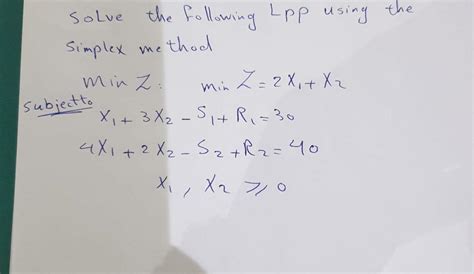 Solve the following Lpp using the
Simplex method
Min Z: min Z = 2X₁ + X₂
Subject to
X₁ + 3X₂ - S₁ + R₁ = 30
4X₁ + 2X₂ - S₂ + R₂ = 40
X₁, X₂ ≥ 0